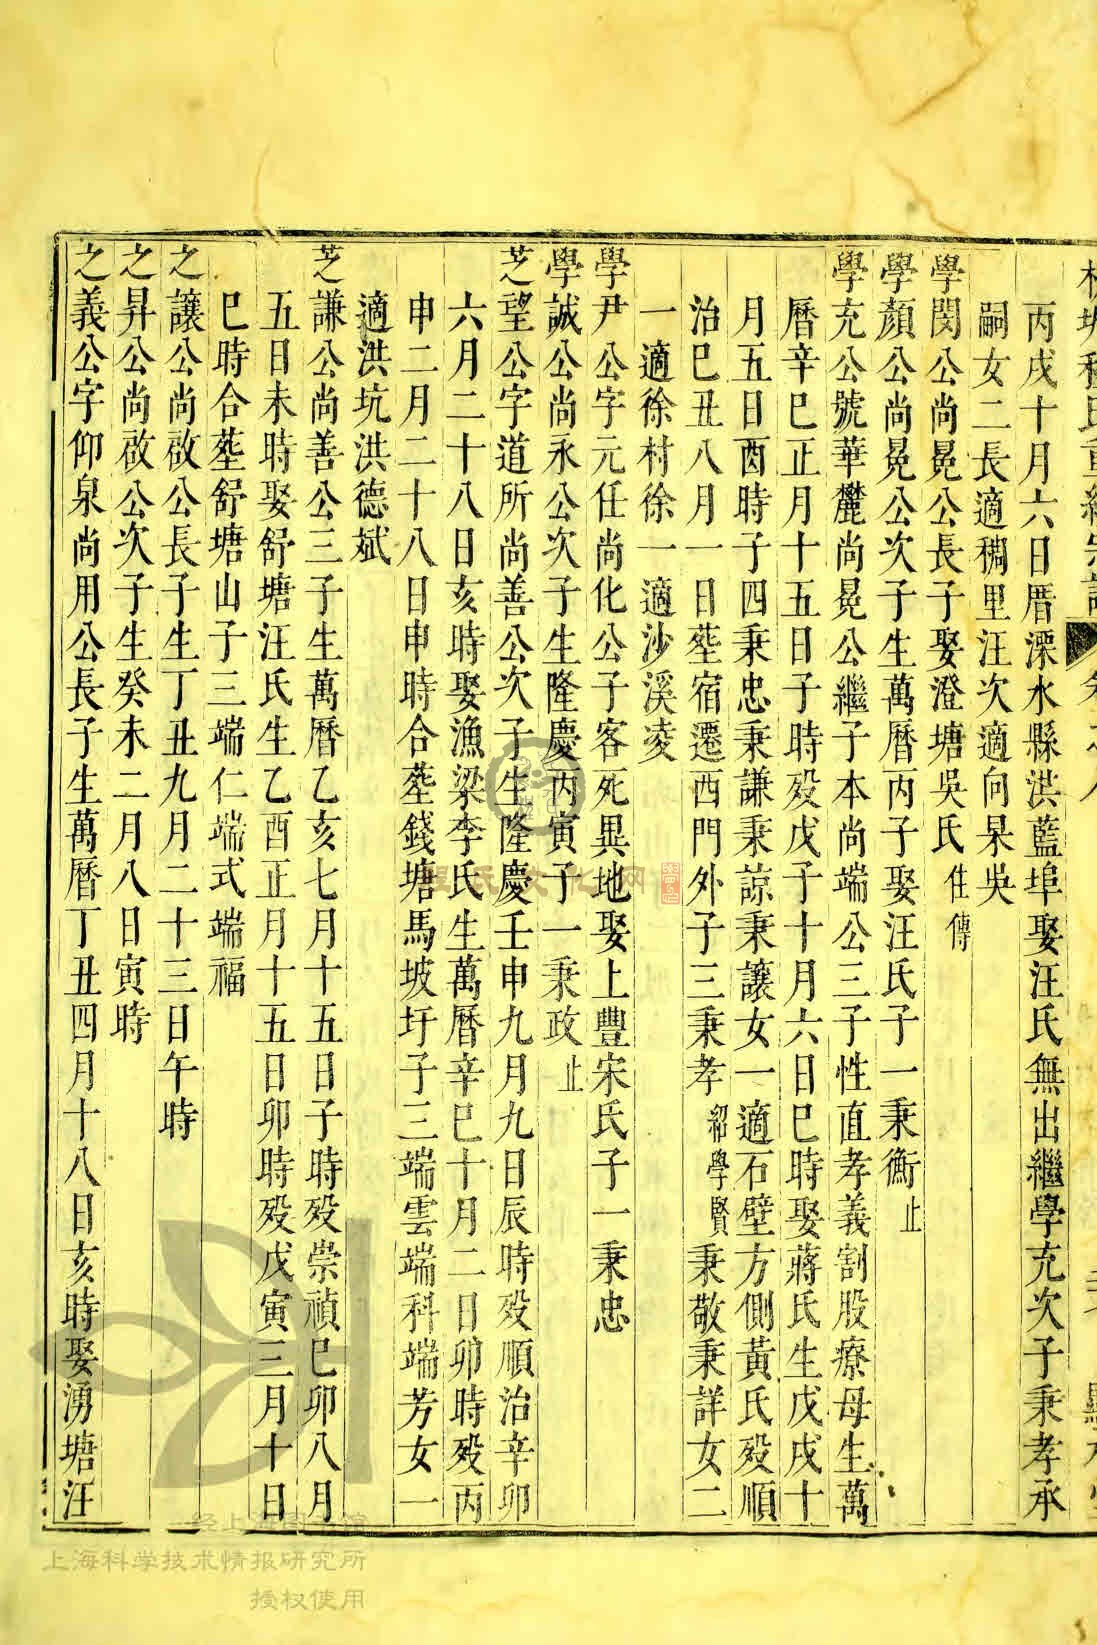 丙戌十月六日厝溧水縣洪藍埠娶汪氏無出繼學充次子秉孝承
嗣女二長適稠里汪次適向杲吳
學閔公尚冕公長子娶澄塘吳氏 隹傳
學顏公尚冕公次子生萬曆丙子娶汪氏子一秉衡 止
學充公號華麓尚冕公繼子本尚端公三子性直孝義割股療母生萬
曆辛巳正月十五日子時殁戊子十月六日巳時娶蔣氏生戊戌十
月五日酉時子四秉忠秉謙秉諒秉讓女一適石壁方側黃氏殁順
治巳丑八月一日塟宿遷西門外子三秉孝 紹學賢 秉敬秉詳女二
一適徐村徐一適沙溪凌
學尹公字元任尚化公子客死異地娶上豐宋氏子一秉忠
學誠公尚永公次子生隆慶丙寅子一秉政 止
芝望公字道所尚善公次子生隆慶壬申九月九日辰時殁順治辛卯
六月二十八日亥時娶漁梁李氏生萬曆辛巳十月二日卯時殁丙
申二月二十八日申時合塟錢塘馬坡圩子三端雲端科端芳女一
適洪坑洪德斌
芝謙公尚善公三子生萬曆乙亥七月十五日子時殁崇禎巳卯八月
五日未時娶舒塘汪氏生乙酉正月十五日卯時殁戊寅三月十日
巳時合塟舒塘山子三端仁端式端福
之讓公尚啟公長子生丁丑九月二十三日午時
之昇公尚啟公次子生癸未二月八日寅時
之義公字仰泉尚用公長子生萬曆丁丑四月十八日亥時娶湧塘汪
上海科学技术情报研究所
授权使用